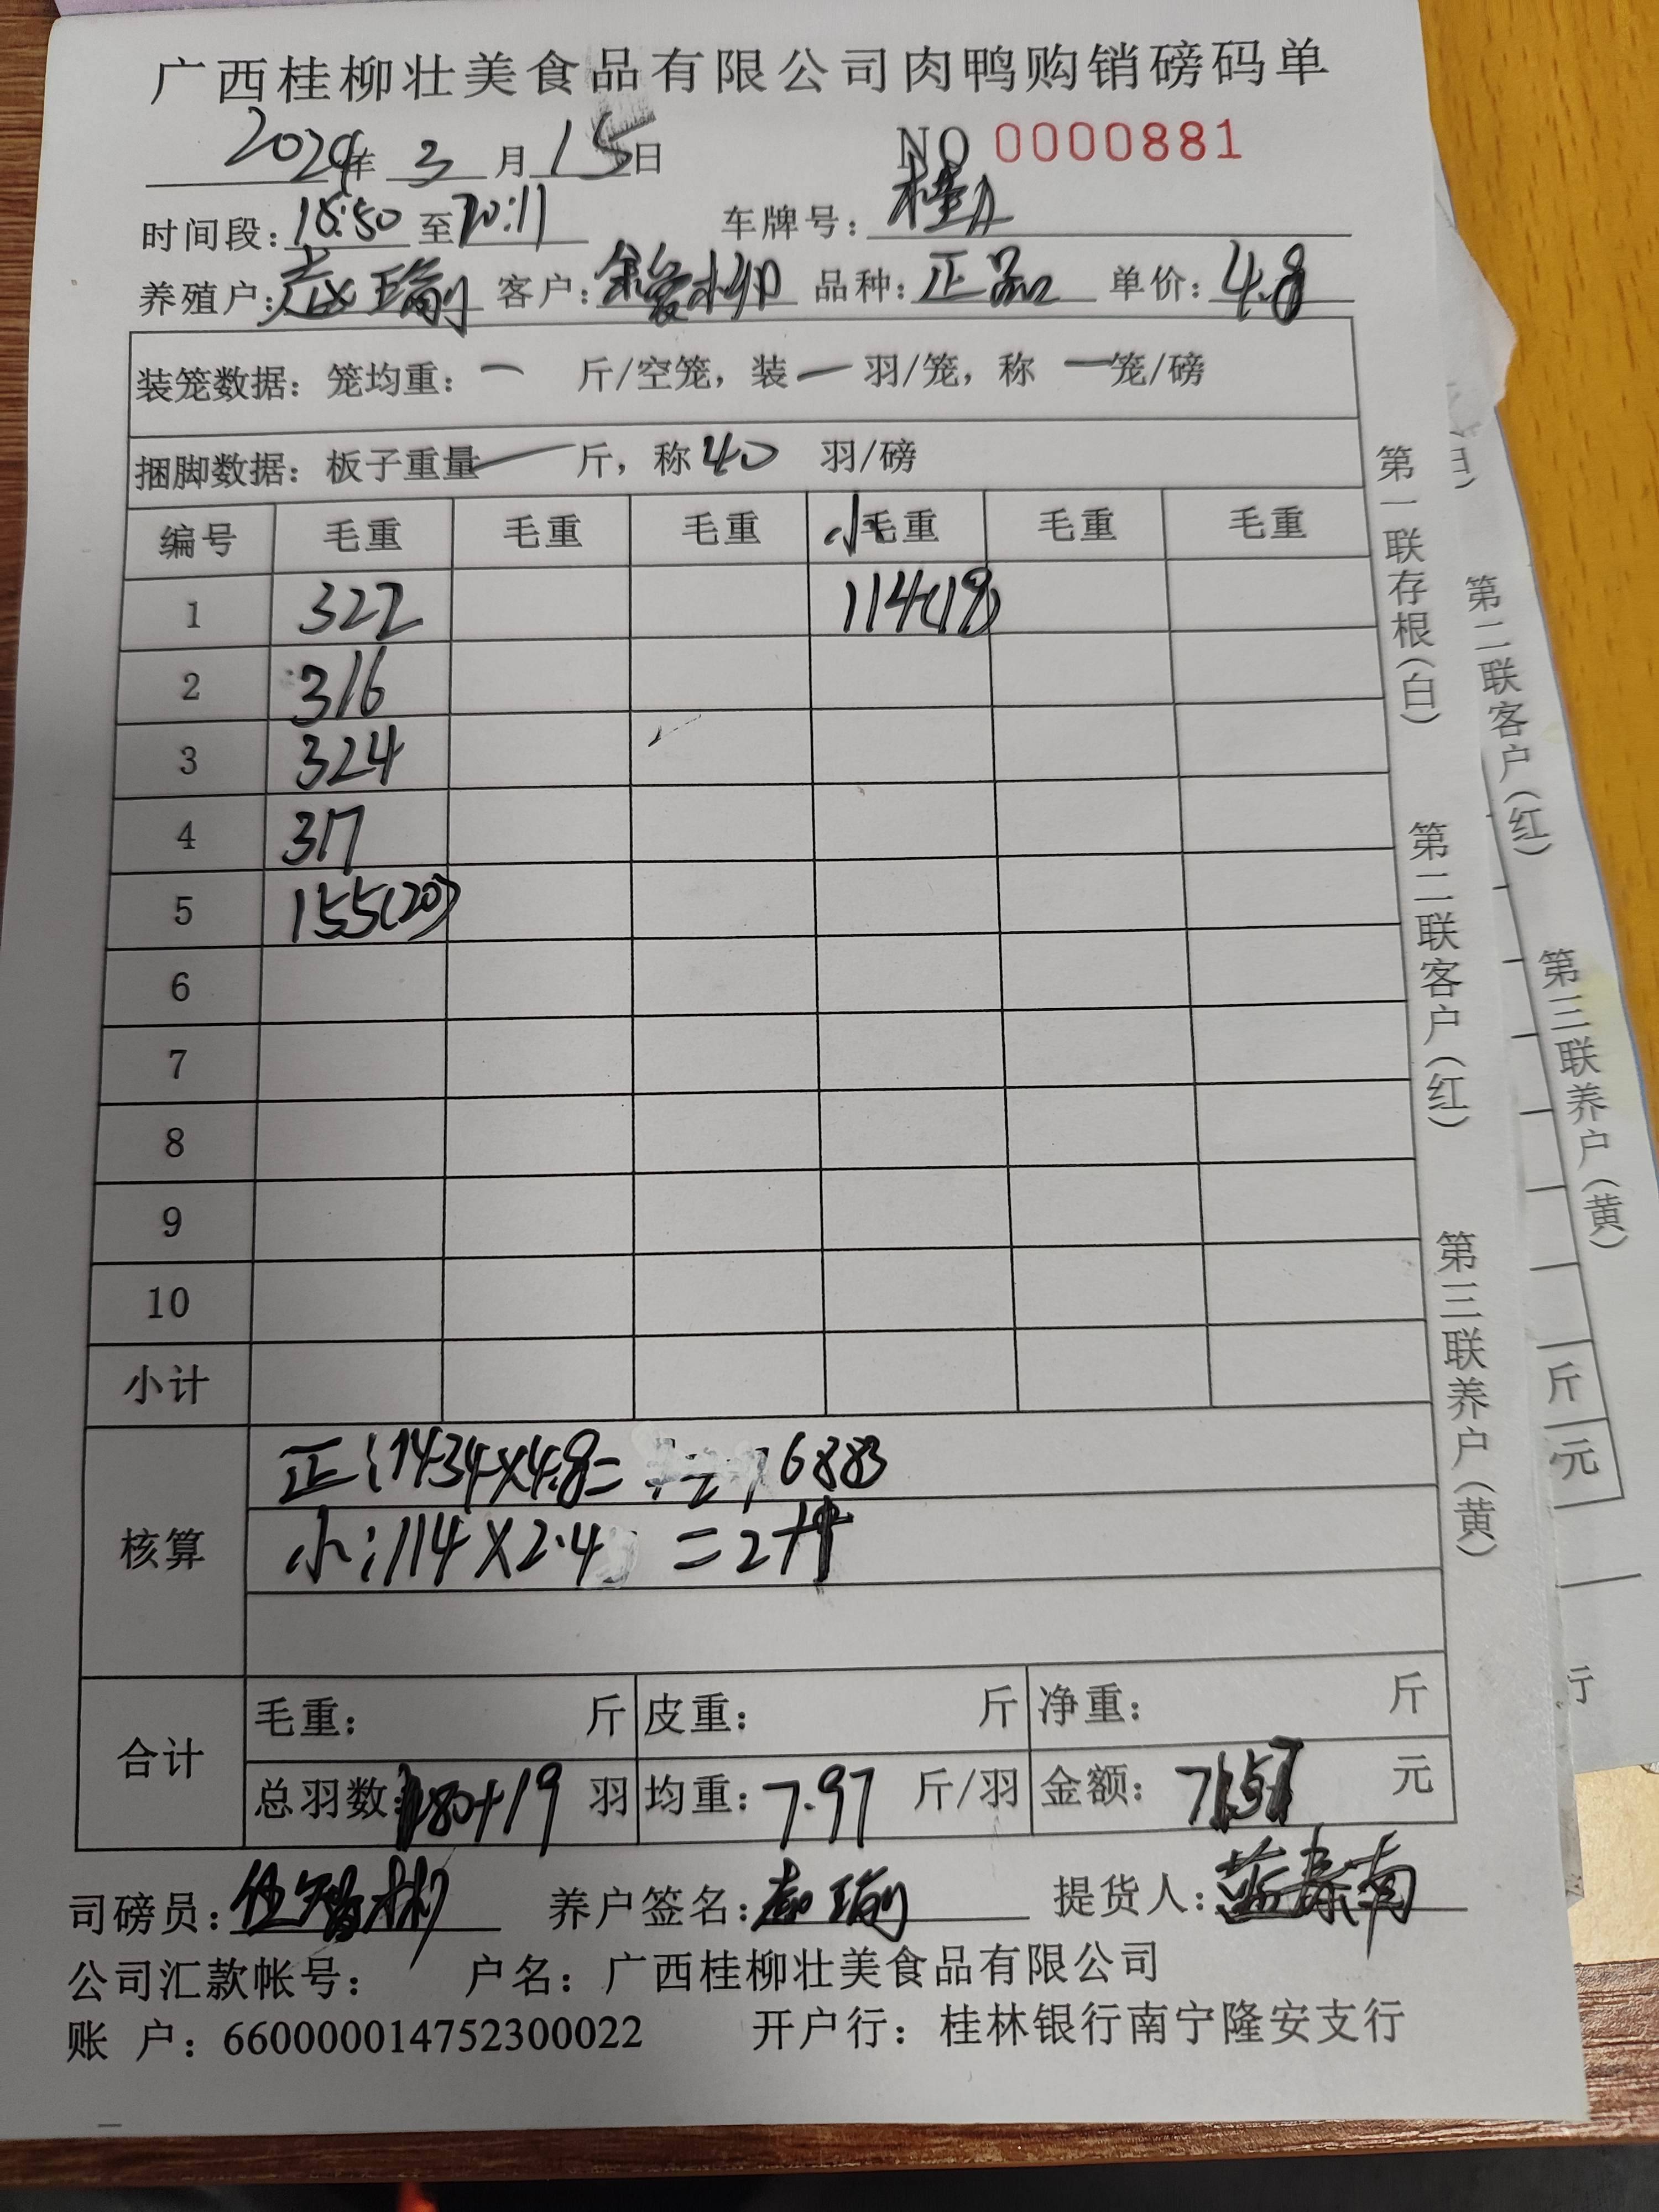 广西桂柳壮美食品有限公司肉鸭购销磅码单
2024年 3 月 15 日 NO 0000881
时间段: 18:50 至 20:11 车牌号: 桂A
养殖户: 客户: 品种: 正品 单价: 4.8
装笼数据: 笼均重: 一 斤/空笼, 装 一 羽/笼, 称 一 笼/磅
捆脚数据: 板子重量 一 斤, 称 40 羽/磅
编号 毛重 毛重 毛重 小毛重 毛重 毛重
1 322 114(19)
2 316
3 324
4 317
5 155(20)
6
7
8
9
10
小计
核算
正:1434×4.8= 6883
小:114×2.4 =274
合计
毛重: 斤 皮重: 斤 净重: 斤
总羽数: 180+19 羽 均重: 7.97 斤/羽 金额: 7157 元
司磅员: 养户签名: 提货人: 蓝春南
公司汇款帐号: 户名: 广西桂柳壮美食品有限公司
账 户: 660000014752300022 开户行: 桂林银行南宁隆安支行
第一联存根(白) 第二联客户(红) 第三联养户(黄)
第二联客户(红) 第三联养户(黄)
斤
元
行